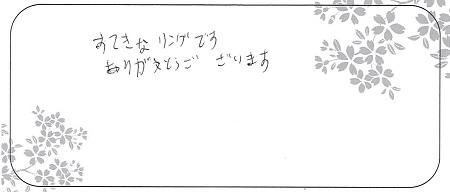 すてきなリングです
ありがとうご ざいます